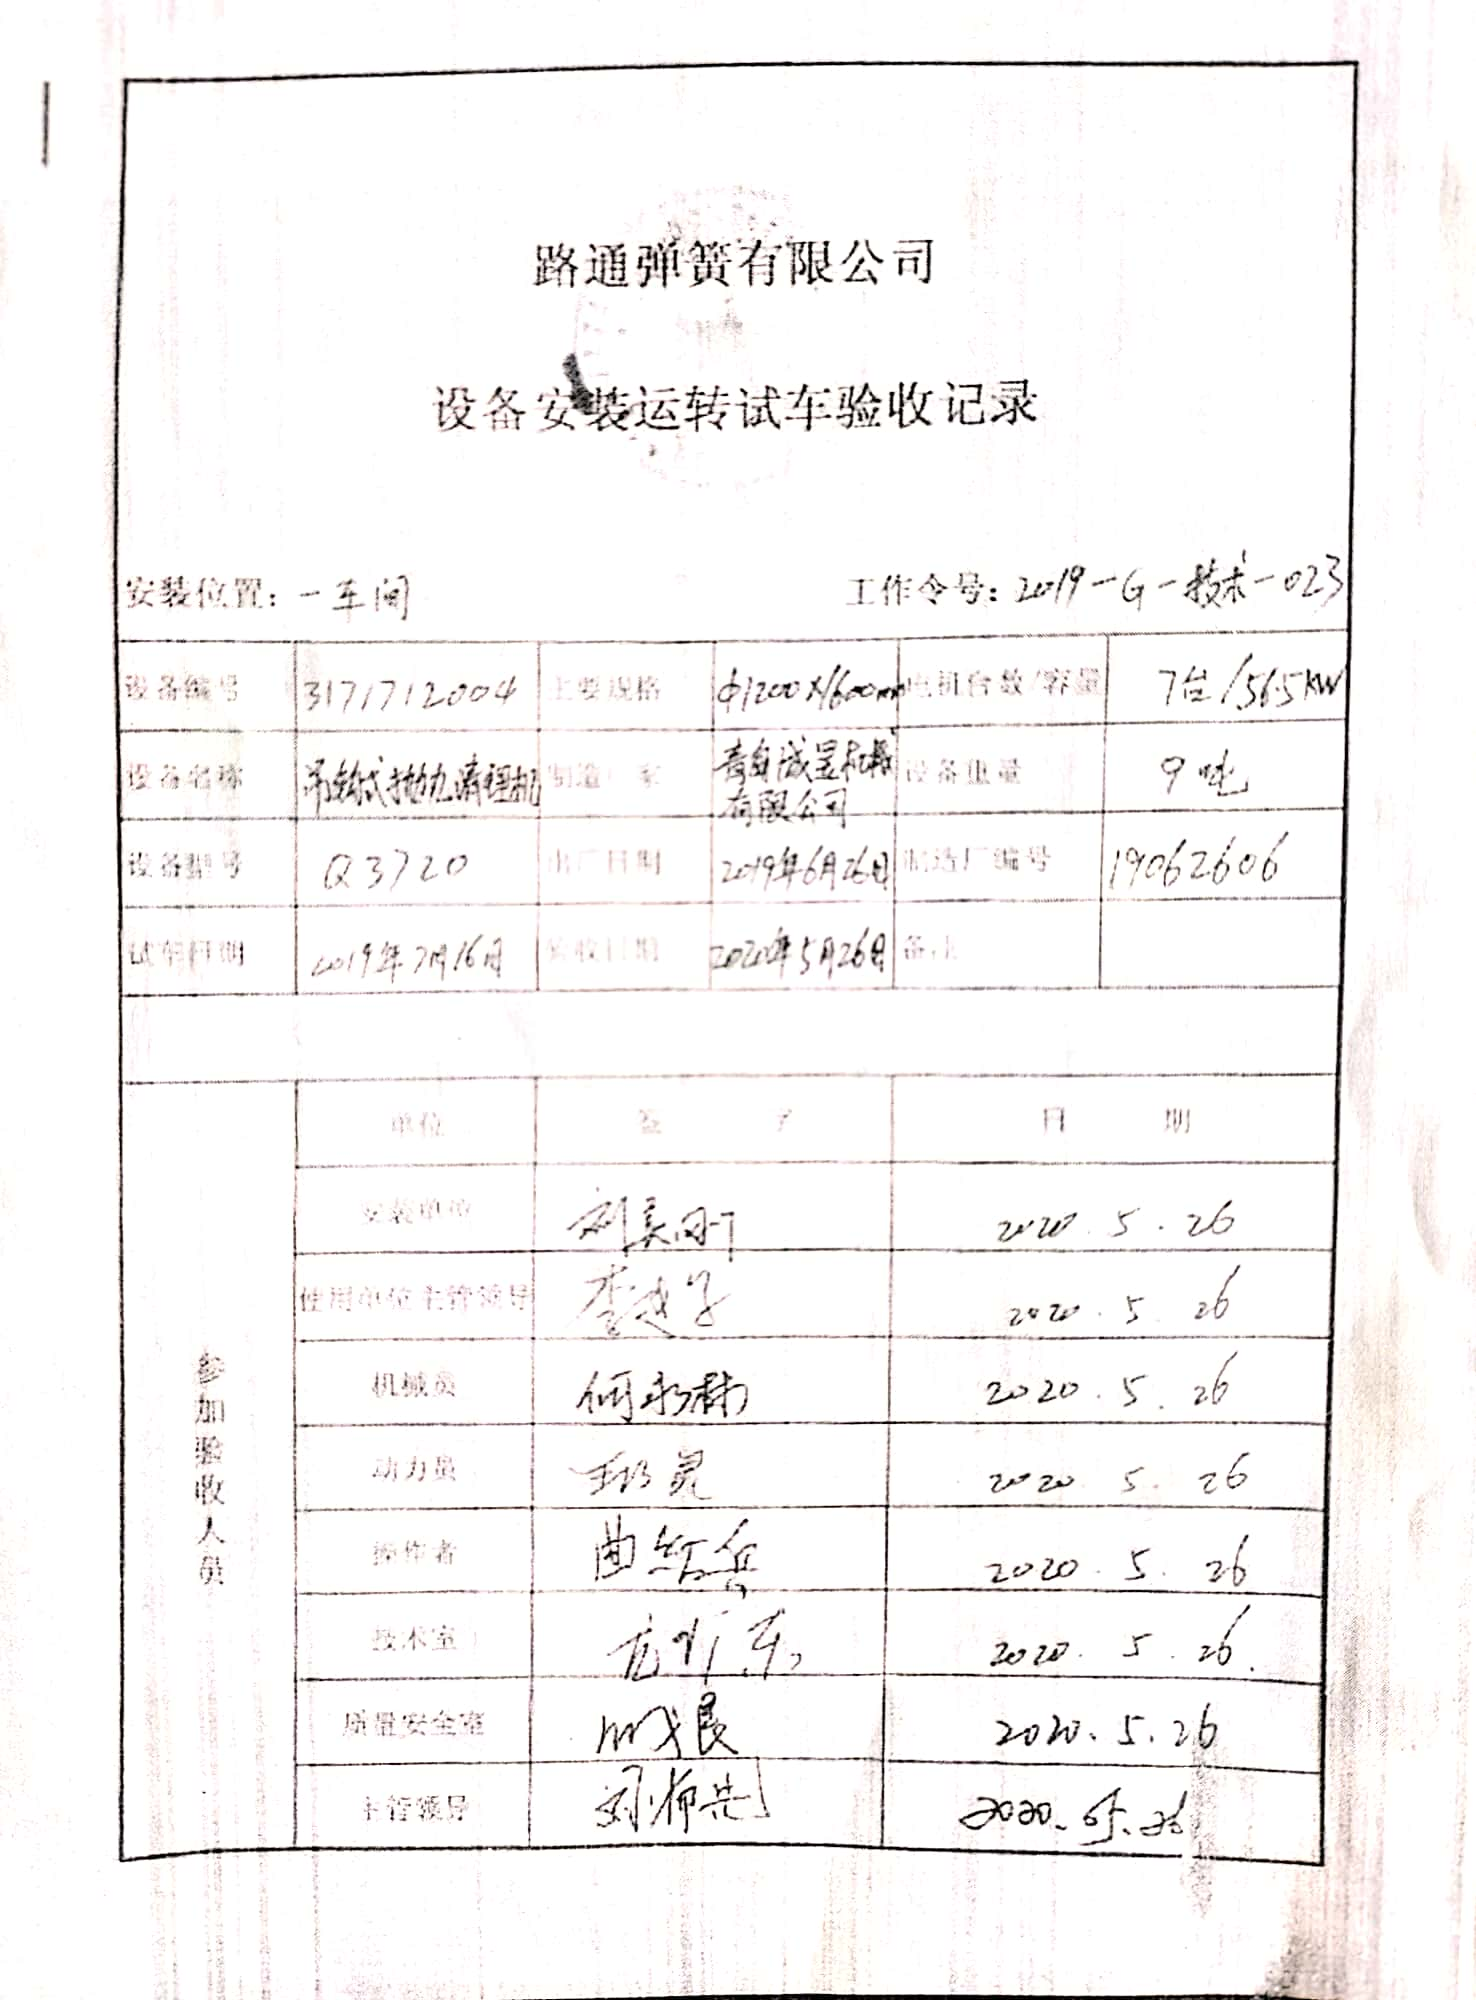 路通弹簧有限公司
设备安装运转试车验收记录
安装位置：一车间 工作令号：2019-G-技术-023
设备编号 3171712004 主要规格 φ1200×1600mm 电机台数/容量 7台/56.5KW
设备名称 吊钩式抛丸清理机 制造厂家 青岛成昱机械有限公司 设备重量 9吨
设备型号 Q3720 出厂日期 2019年6月26日 制造厂编号 19062606
试车日期 2019年7月16日 验收日期 2020年5月26日 备注
参加验收人员
单位 签字 日期
安装单位 2020.5.26
使用单位主管领导 2020.5.26
机械员 2020.5.26
动力员 2020.5.26
操作者 2020.5.26
技术室 2020.5.26.
质量安全室 2020.5.26
主管领导 2020.05.26